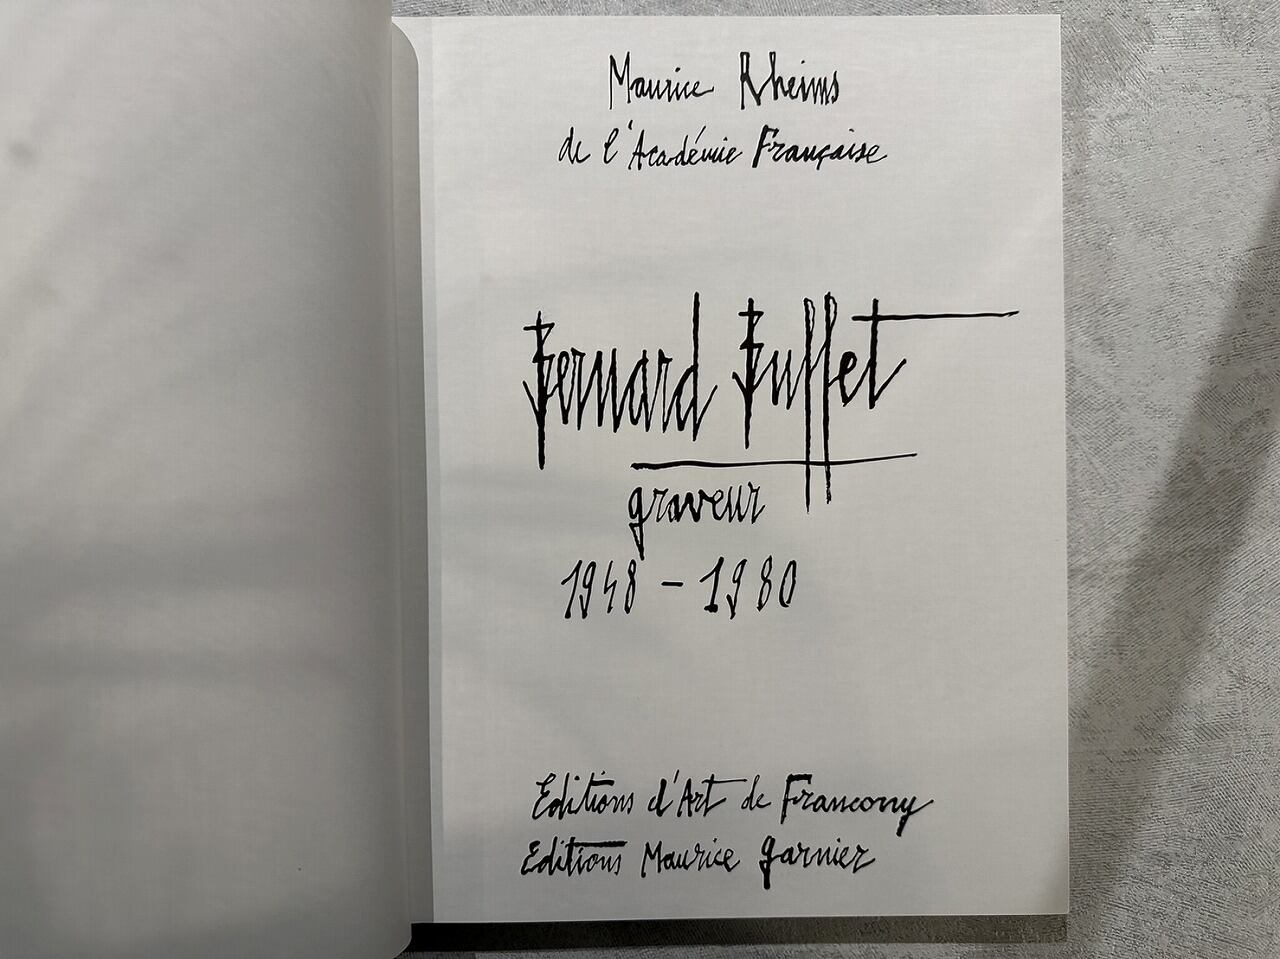 Maurice Rheims
de l'Académie Française
Bernard Buffet
graveur
1948 - 1980
Editions d'Art de Francony
Editions Maurice Garnier